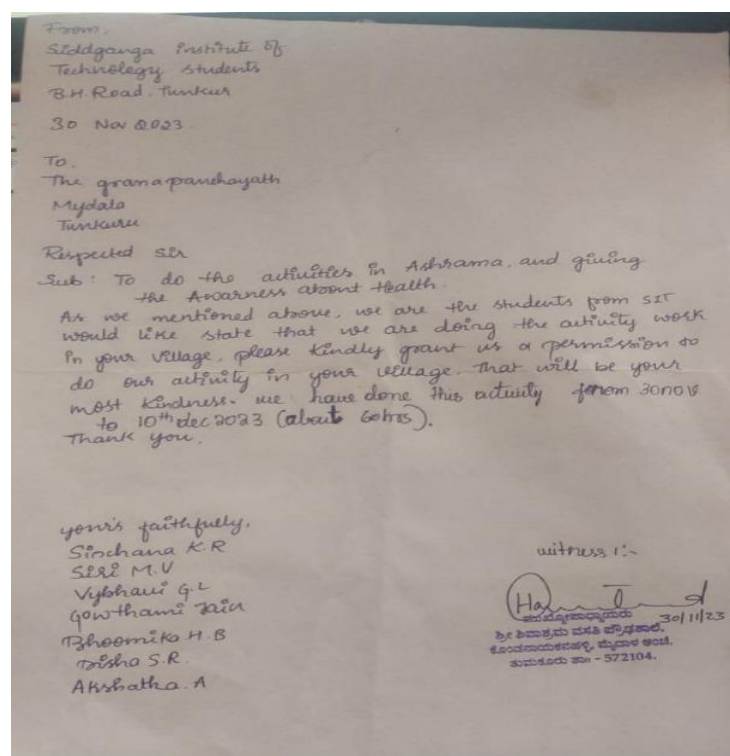 From,
Siddganga Institute of
Technology students
B.H. Road, Tumkur
30 Nov 2023
To,
The gramapanchayath
Mydala
Tumkuru
Respected Sir
Sub: To do the activities in Ashrama, and giving
the Awarness about Health.
As we mentioned above, we are the students from SIT
would like state that we are doing the activity work
in your village, please kindly grant us a permission to
do our activity in your village. That will be your
most kindness. we have done this activity from 30nov
to 10th dec 2023 (about 60hrs).
Thank you.
your's faithfully,
Sinchana K.R
Siri M.V
Vybhavi G.L
Gowthami Jain
Bhoomika H.B
Disha S.R.
Akshatha.A
witness 1:-
30/11/23
ಮುಖ್ಯೋಪಾಧ್ಯಾಯರು
ಶ್ರೀ ಶಿವಾಶ್ರಮ ವಸತಿ ಪ್ರೌಢಶಾಲೆ,
ಕೊಂಡನಾಯಕನಹಳ್ಳಿ, ಮೈದಾಳ ಅಂಚೆ.
ತುಮಕೂರು ತಾಃ - 572104.